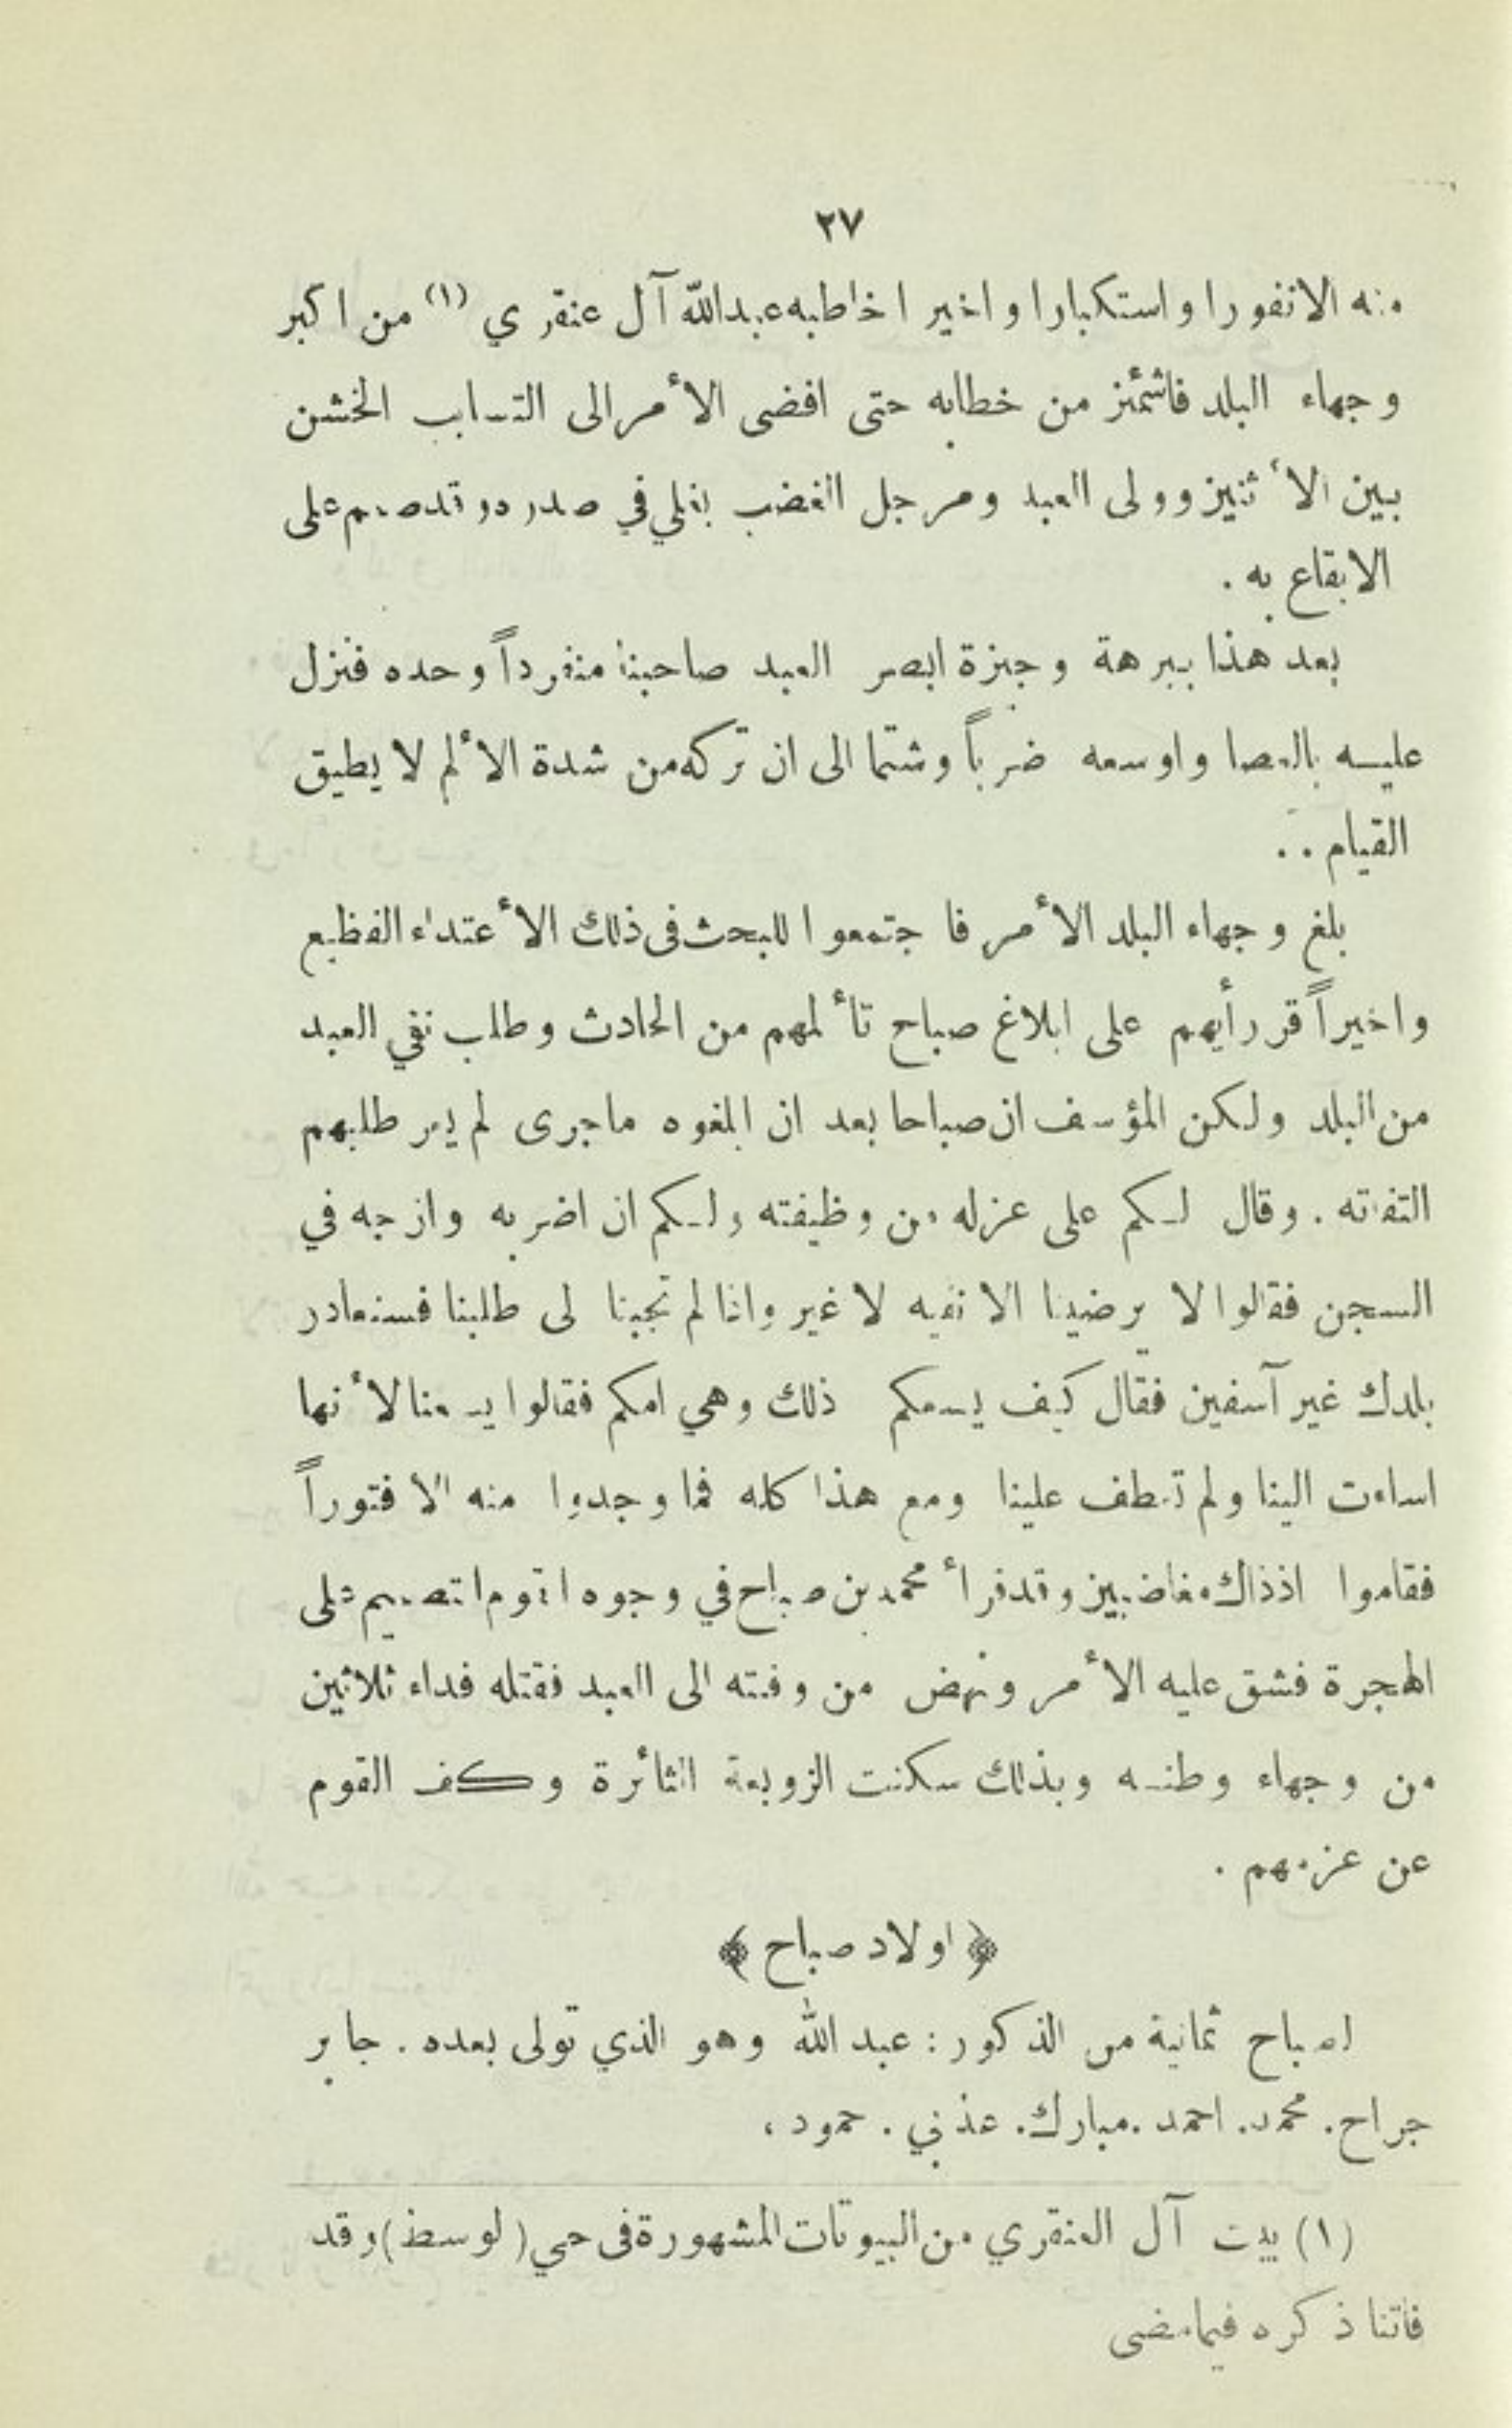 ٢٧
منه الا نفورا واستكبارا واخيرا خاطبه عبدالله آل عنقري (١) من اكبر
وجهاء البلد فاشمئز من خطابه حتى افضى الأمر الى التساب الخشن
بين الأثنين وولى العبد ومرجل الغضب يغلي في صدره وقد صمم على
الايقاع به .
بعد هذا ببرهة وجيزة ابصر العبد صاحبنا منفرداً وحده فنزل
عليه بالعصا واوسعه ضرباً وشتما الى ان تركه من شدة الألم لا يطيق
القيام . .
بلغ وجهاء البلد الأمر فاجتمعوا للبحث فى ذلك الأعتداء الفظيع
واخيراً قر رأيهم على ابلاغ صباح تألمهم من الحادث وطلب نفي العبد
من البلد ولكن المؤسف ان صباحا بعد ان ابلغوه ماجرى لم يعر طلبهم
التفاته . وقال لكم على عزله من وظيفته ولكم ان اضربه وازجه في
السجن فقالوا لا يرضينا الا نفيه لا غير واذا لم تجبنا الى طلبنا فسنغادر
بلدك غير آسفين فقال كيف يسعكم ذلك وهي امكم فقالوا يسعنا لأنها
اساءت الينا ولم تعطف علينا ومع هذا كله فما وجدوا منه الا فتوراً
فقاموا اذذاك مغاضبين وقد قرأ محمد بن صباح في وجوه القوم التصميم على
الهجرة فشق عليه الأمر ونهض من وقته الى العبد فقتله فداء ثلاثين
من وجهاء وطنه وبذلك سكنت الزوبعة الثائرة وكف القوم
عن عزمهم .
﴿ اولاد صباح ﴾
لصباح ثمانية من الذكور : عبد الله وهو الذي تولى بعده . جابر
جراح . محمد . احمد . مبارك . عذبي . حمود ،
(١) بيت آل العنقري من البيوتات المشهورة فى حي (الوسط) وقد
فاتنا ذكره فيما مضى